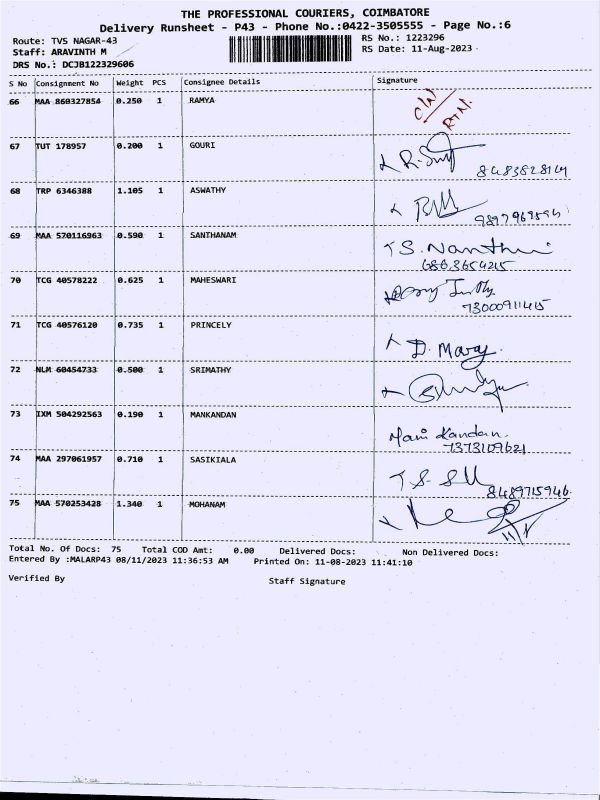 THE PROFESSIONAL COURIERS, COIMBATORE
Delivery Runsheet - P43 - Phone No.:0422-3505555 - Page No.:6
Route: TVS NAGAR-43 RS No.: 1223296
Staff: ARAVINTH M RS Date: 11-Aug-2023
DRS No.: DCJB122329606
S No Consignment No Weight PCS Consignee Details Signature
66 MAA 860327854 0.250 1 RAMYA
67 TUT 178957 0.200 1 GOURI
8483828169
68 TRP 6346388 1.105 1 ASWATHY
69 MAA 570116963 0.590 1 SANTHANAM
70 TCG 40578222 0.625 1 MAHESWARI
71 TCG 40576120 0.735 1 PRINCELY
D. Mary
72 NLM 60454733 0.500 1 SRIMATHY
73 IXM 504292563 0.190 1 MANKANDAN
Mani Kandan.
7373109621
74 MAA 297061957 0.710 1 SASIKIALA
8489715946
75 MAA 570253428 1.340 1 MOHANAM
Total No. Of Docs: 75 Total COD Amt: 0.00 Delivered Docs: Non Delivered Docs:
Entered By :MALARP43 08/11/2023 11:36:53 AM Printed On: 11-08-2023 11:41:10
Verified By Staff Signature